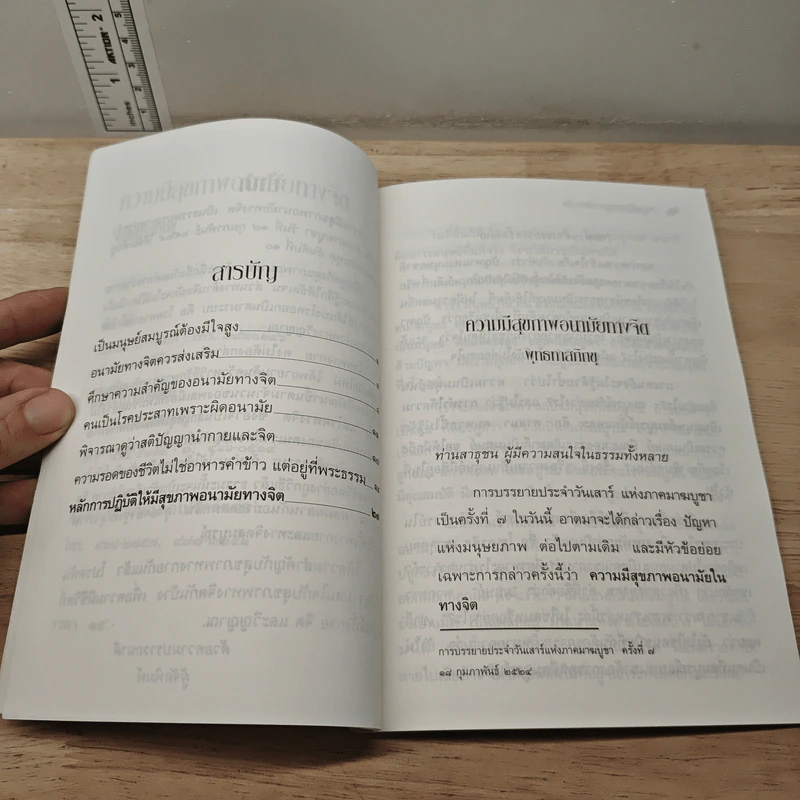 inches 1 2
AKTION
4 5
สารบัญ
เป็นมนุษย์สมบูรณ์ต้องมีใจสูง ๑
อนามัยทางจิตควรส่งเสริม
ศึกษาความสำคัญของอนามัยทางจิต
คนเป็นโรคประสาทเพราะผิดอนามัย
พิจารณาดูว่าสติปัญญานำกายและจิต
ความรอดของชีวิตไม่ใช่อาหารคำข้าว แต่อยู่ที่พระธรรม
หลักการปฏิบัติให้มีสุขภาพอนามัยทางจิต
ความมีสุขภาพอนามัยทางจิต
พุทธทาสภิกขุ
ท่านสาธุชน ผู้มีความสนใจในธรรมทั้งหลาย
การบรรยายประจำวันเสาร์ แห่งภาคมาฆบูชา
เป็นครั้งที่ ๗ ในวันนี้ อาตมาจะได้กล่าวเรื่อง ปัญหา
แห่งมนุษยภาพ ต่อไปตามเดิม และมีหัวข้อย่อย
เฉพาะการกล่าวครั้งนี้ว่า ความมีสุขภาพอนามัยใน
ทางจิต
การบรรยายประจำวันเสาร์แห่งภาคมาฆบูชา ครั้งที่ ๗
๑๘ กุมภาพันธ์ ๒๕๒๔